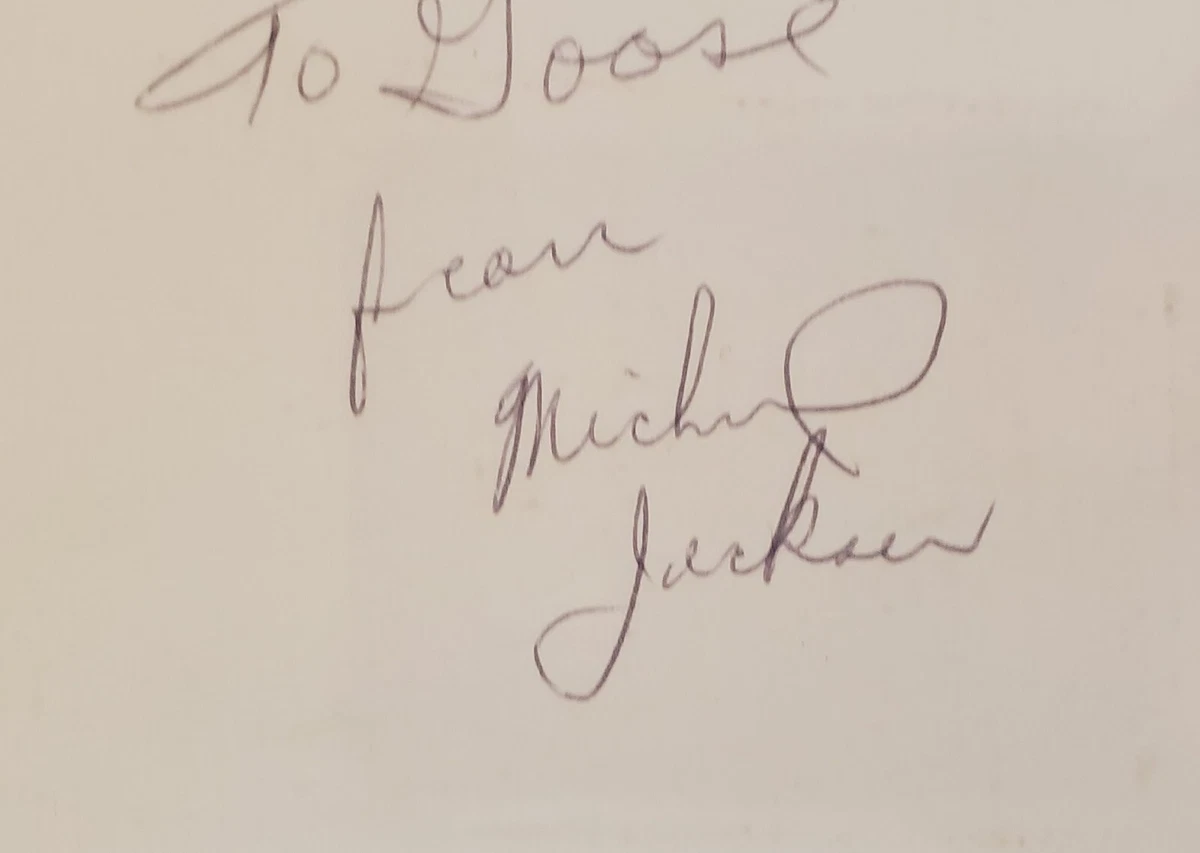 To Goose
from
Michael
Jackson